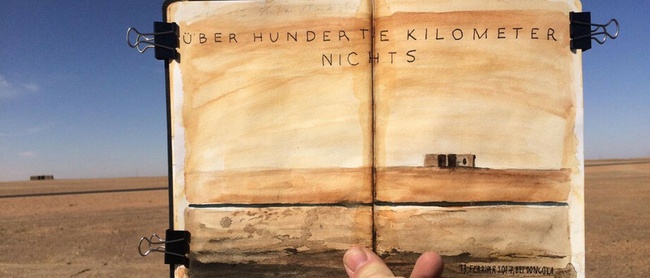 ÜBER HUNDERTE KILOMETER
NICHTS
17. FEBRUAR 2017, BEI DONGOLA